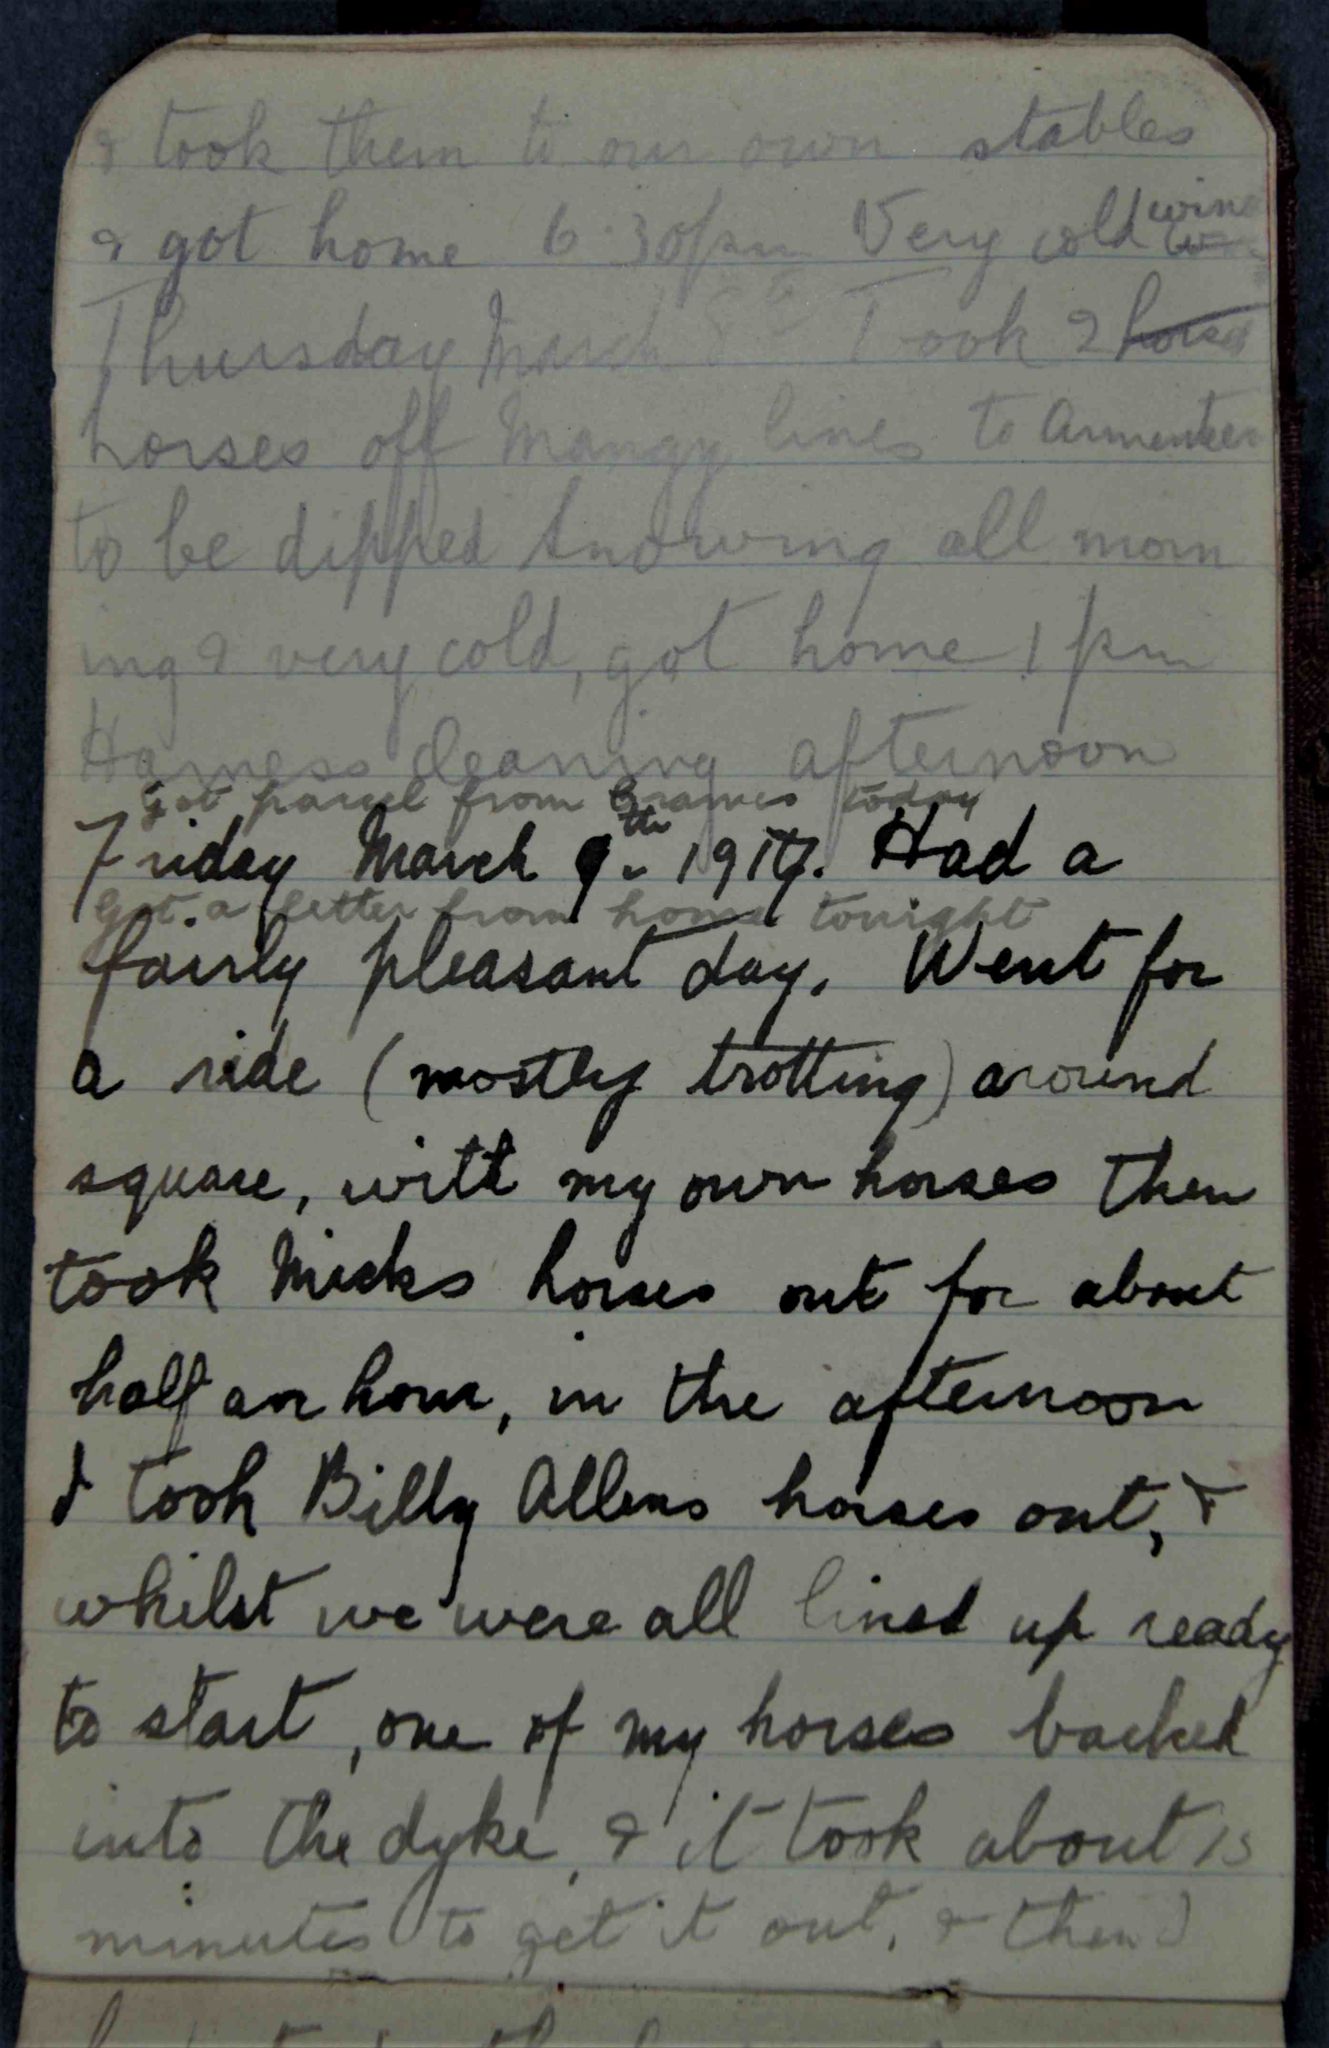 & took them to our own stables
& got home 6.30pm Very cold wind
Thursday March 8th Took 2 horses
horses off Mangy lines to Armentier
to be dipped Snowing all morn
ing & very cold, got home 1 pm
Harness cleaning afternoon
Got parcel from today
Friday March 9th 1917. Had a
Got a letter from home tonight
fairly pleasant day. Went for
a ride (mostly trotting) around
square, with my own horses then
took Micks horses out for about
half an hour, in the afternoon
I took Billy Allens horses out, &
whilst we were all lined up ready
to start, one of my horses backed
into the dyke, & it took about 15
minutes to get it out, & then I